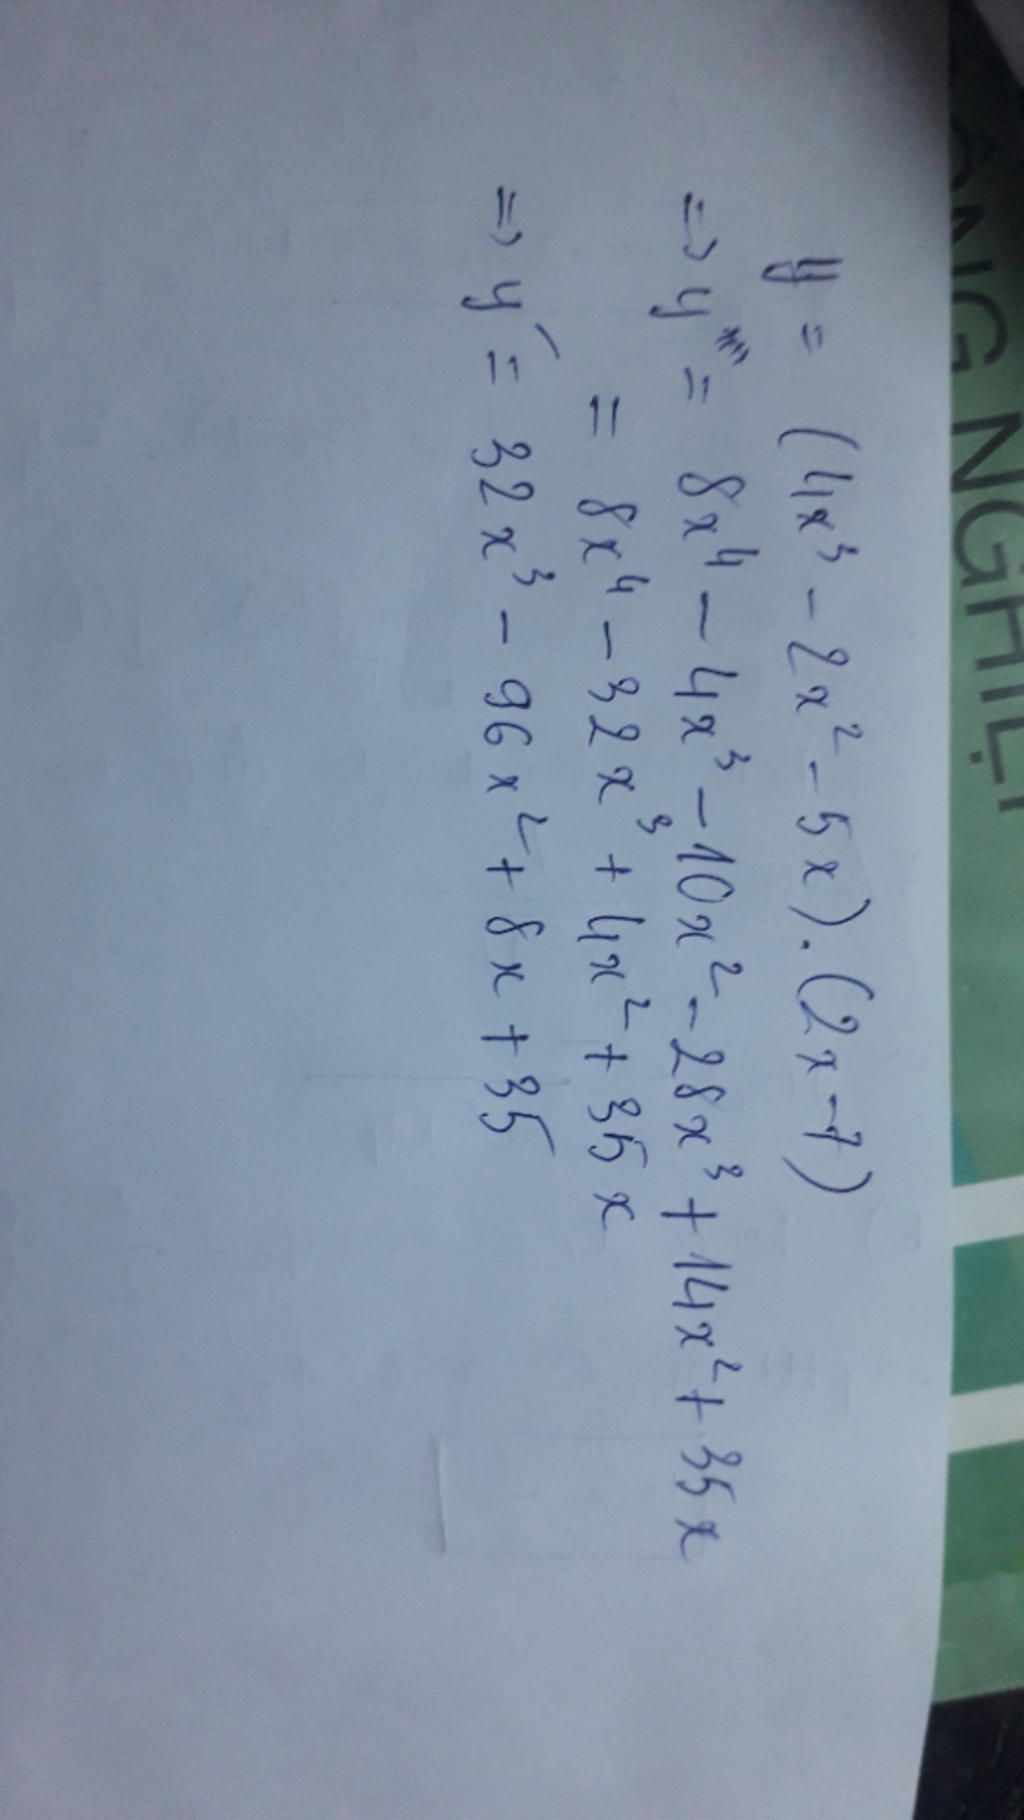 y = (4x³ - 2x² - 5x).(2x - 7)
=> y = 8x⁴ - 4x³ - 10x² - 28x³ + 14x² + 35x
= 8x⁴ - 32x³ + 4x² + 35x
=> y' = 32x³ - 96x² + 8x + 35